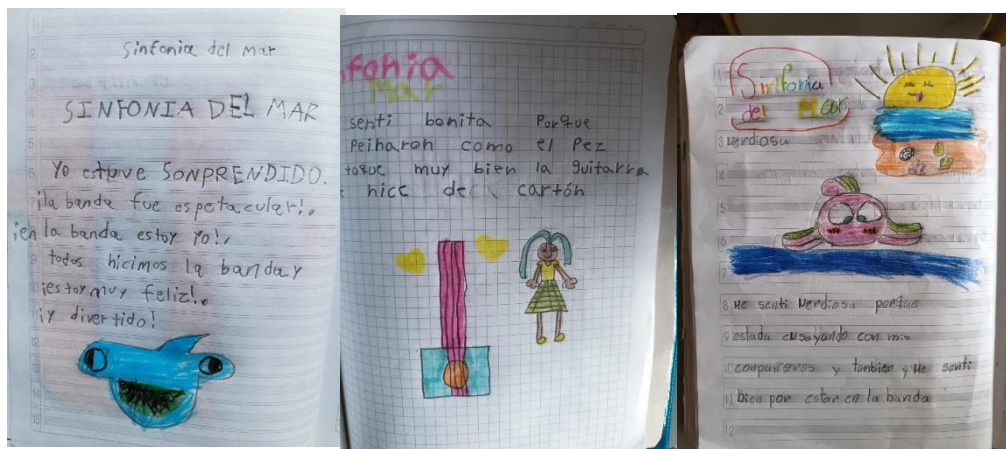 Sinfonia del mar
SINFONIA DEL MAR
Yo estuve SONPRENDIDO.
¡la banda fue espetacular!.
¡en la banda estoy yo!.
todos hicimos la banda y
¡estoy muy feliz!.
¡y divertido!
nfonia
Mar
senti bonita Porque
Peinaron como el Pez
toque muy bien la guitarra
hice de cartón
Sinfonia
del Mar
Nerdiosa
Me senti Nerdiosa porque
estada ensayando con mis
conpañeros y tanbien y Me senti
bien por estar en la banda